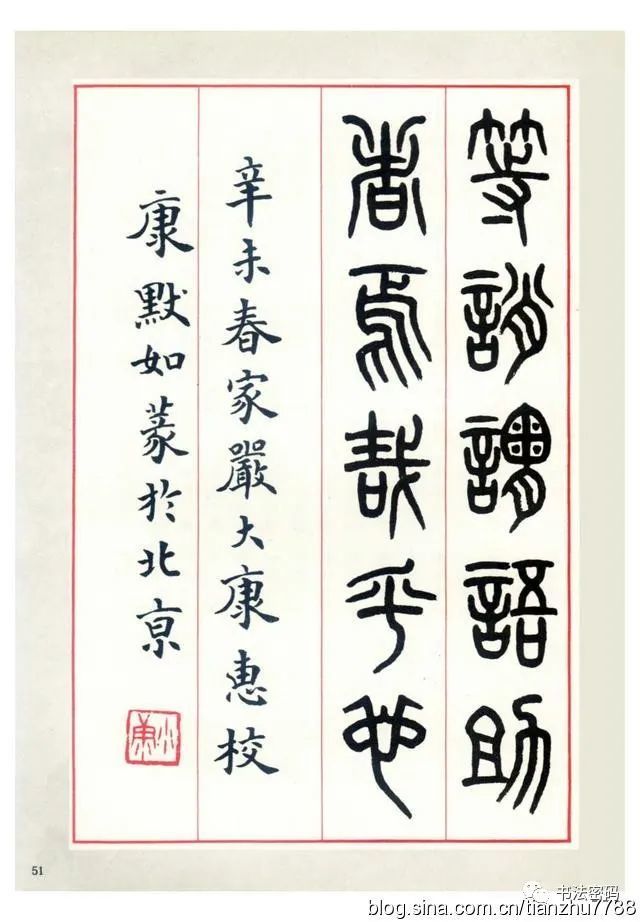 等誚謂語助
者焉哉乎也
辛未春家嚴大康惠校
康默如篆於北京
小康
51
书法密码
blog.sina.com.cn/tianzhu7788